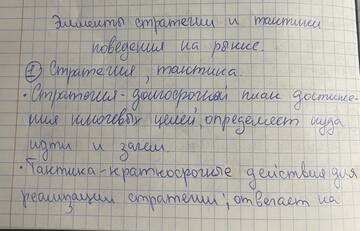 Элементы стратегии и тактики
поведения на рынке.
① Стратегия, тактика.
• Стратегия - долгосрочный план достиже-
ния ключевых целей, определяет куда
идти и зачем.
• Тактика - краткосрочные действия для
реализации стратегии; отвечает на
3